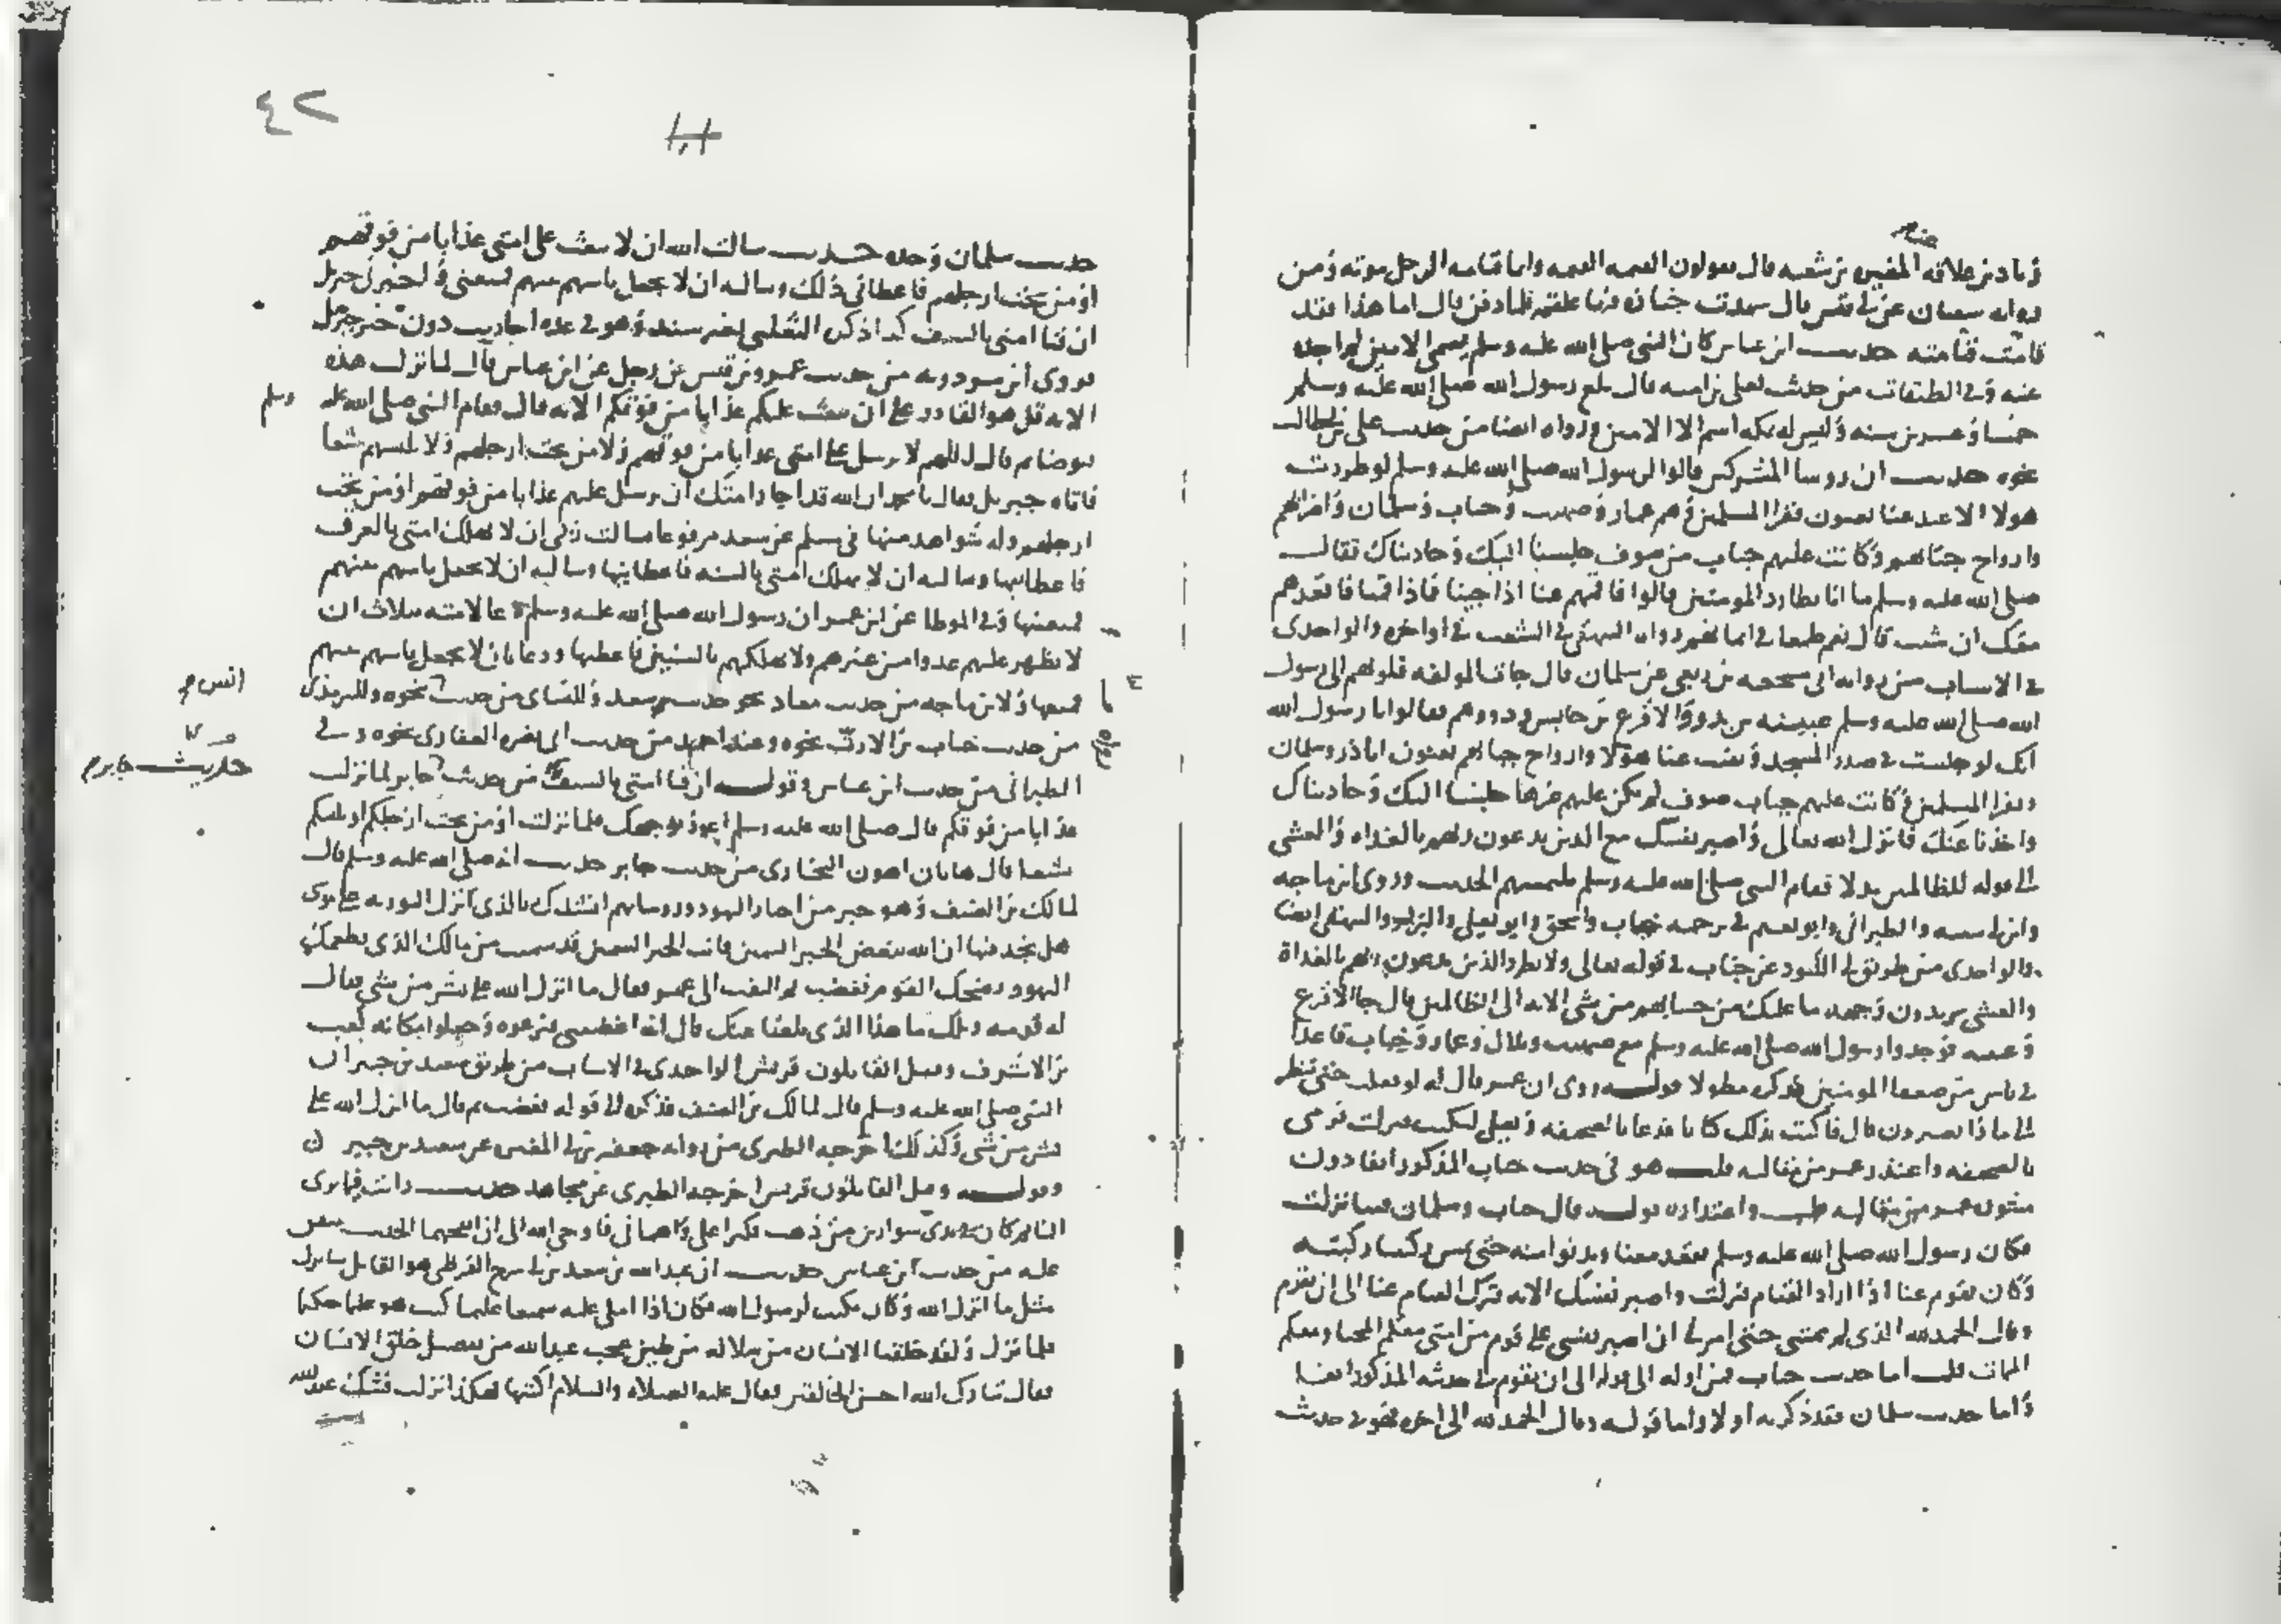 زياد بن علاقة المغيرة بن شعبة قال يقولون القيمه القيمه وانما قيامه الرجل موته ومن
رواية سفيان عن ابي قيس قال شهدت جنازة فيها علقمة فلما دفن قال اما هذا فقد
قامت قيامته حديث ابن عباس كان النبي صلى الله عليه وسلم يسمى الامين
عنه وفي الطبقات من حديث يعلى بن اميه قال بلغ رسول الله صلى الله عليه وسلم
خمسا وعشرين سنه وليس له بمكه اسم الا الامين ورواه ايضا من حديث على بن ابي طالب
نحوه حديث ان روسا المشركين قالوا لرسول الله صلى الله عليه وسلم لو طردت
هولا الاعبد عنا يعنون فقرا المسلمين وهم عمار وصهيب وخباب وسلمان واضرابهم
وارواح جبابهم وكانت عليهم جباب من صوف جلسنا اليك وحادثناك فقال
صلى الله عليه وسلم ما انا بطارد المومنين قالوا فاقمهم عنا اذا جينا فاذا قمنا فاقعدهم
معك ان شيت قال نعم طمعا في ايمانهم رواه البيهقي في الشعب في اواخره والواحدى
في الاسباب من روايه ابي مشجعه بن ربعي عن سلمان قال جات المولفه قلوبهم الى رسول
الله صلى الله عليه وسلم عيينه بن بدر والاقرع بن حابس وذووهم فقالوا يا رسول الله
انك لو جلست في صدر المسجد ونفيت عنا هولا وارواح جبابهم يعنون اباذر وسلمان
وفقرا المسلمين وكانت عليهم جباب صوف لم يكن عليهم غيرها جلسنا اليك وحادثناك
واخذنا عنك فانزل الله تعالى واصبر نفسك مع الذين يدعون ربهم بالغداه والعشي
الى قوله للظالمين بدلا فقام النبي صلى الله عليه وسلم يلتمسهم الحديث وروى ابن ماجه
وابن ابي شيبه والطبراني وابو نعيم في ترجمه خباب واسحق وابو يعلى والبزار والبيهقي ايضا
والواحدى من طريق ابي الكنود عن خباب في قوله تعالى ولا تطرد الذين يدعون ربهم بالغداة
والعشي يريدون وجهه ما عليك من حسابهم من شي الايه الى الظالمين قال جا الاقرع
وعيينه فوجدوا رسول الله صلى الله عليه وسلم مع صهيب وبلال وعمار وخباب قاعدا
في ناس من ضعفا المومنين فذكره مطولا قوله روى ان عمر قال له لو فعلت حتى ننظر
الى ماذا يصيرون قال فاكتب بذلك كتابا فدعا بالصحيفه وبعلي ليكتب فنزلت فرمى
بالصحيفه واعتذر عمر من مقاله قلت هو في حديث خباب المذكور انفا دون
عمر من مقاليه واعتذاره قوله قال خباب وسلمان فينا نزلت
فكان رسول الله صلى الله عليه وسلم يقعد معنا ويدنو منه حتى تمس ركبنا ركبته
وكان يقوم عنا اذا اراد القيام فنزلت واصبر نفسك الايه فترك القيام عنا الى ان نقوم
وقال الحمد لله الذي لم يمتني حتى امرني ان اصبر نفسي على قوم من امتي معكم المحيا ومعكم
الممات قلت اما حديث خباب فمن اوله الى قوله الى ان نقوم في حديثه المذكور ايضا
واما حديث سلمان فقد ذكر به اولا واما قوله وقال الحمد لله الى اخره فهو في حديث
٤٢
حديث سلمان وحده حديث سالت الله ان لا يبعث على امتي عذابا من فوقهم
او من تحت ارجلهم فاعطاني ذلك وسالته ان لا يجعل باسهم بينهم فمنعني واخبرني جبريل
ان فنا امتي بالسيف كذا ذكره الثعلبي بغير سند وهو في عده احاديث دون خبر جبريل
فروى ابن مردويه من حديث عمرو بن قيس عن رجل عن ابن عباس قال لما نزلت هذه
الايه قل هو القادر على ان يبعث عليكم عذابا من فوقكم الايه قال فقام النبي صلى الله عليه وسلم
فتوضا ثم قال اللهم لا ترسل على امتي عذابا من فوقهم ولا من تحت ارجلهم ولا تلبسهم شيعا
فاتاه جبريل فقال يا محمد ان الله قد اجار امتك ان يرسل عليهم عذابا من فوقهم او من تحت
ارجلهم وله شواهد منها في مسلم عن سعد مرفوعا سالت ربي ان لا يهلك امتي بالغرق
فاعطانيها وسالته ان لا يهلك امتي بالسنه فاعطانيها وسالته ان لا يجعل باسهم بينهم
فمنعنيها وفي الموطا عن ابن عمر ان رسول الله صلى الله عليه وسلم دعا لامته بثلاث ان
لا يظهر عليهم عدوا من غيرهم ولا يهلكهم بالسنين فاعطيها ودعا بان لا يجعل باسهم بينهم
فمنعها ولابن ماجه من حديث معاذ نحو حديث سعد وللنساى من حديث نحوه وللترمذى
انس
من حديث خباب بن الارت نحوه وعند احمد من حديث ابي بصره الغفارى نحوه وفي
الطبراني من حديث ابن عباس وقوله ان فنا امتي بالسيف من حديث جابر لما نزلت
حديث جابر
عذابا من فوقكم قال صلى الله عليه وسلم اعوذ بوجهك فلما نزلت او من تحت ارجلكم او يلبسكم
شيعا قال هاتان اهون البخارى من حديث جابر حديث انه صلى الله عليه وسلم قال
لمالك بن الصيف وهو حبر من احبار اليهود وروسايهم انشدك بالذى انزل التوريه على موسى
هل تجد فيها ان الله يبغض الحبر السمين فانت الحبر السمين قد سمنت من مالك الذى يطعمك
اليهود فضحك القوم فغضب ثم التفت الى عمر فقال ما انزل الله على بشر من شي فقال
له قومه ويلك ما هذا الذى بلغنا عنك قال انه اغضبني فنزعوه وجعلوا مكانه كعب
بن الاشرف وقيل القايلون قريش الواحدى في الاسباب من طريق سعيد بن جبير ان
النبي صلى الله عليه وسلم قال لمالك بن الصيف فذكره الى قوله فغضب ثم قال ما انزل الله على
بشر من شي وكذلك اخرجه الطبرى من روايه جعفر بن ابي المغيره عن سعيد بن جبير
وقوله وقيل القايلون قريش اخرجه الطبرى عن مجاهد حديث رايت فيما يرى
النايم كان في يدى سوارين من ذهب فكبرا علي واهماني فاوحى الله الي ان انفخهما الحديث متفق
عليه من حديث ابن عباس حديث ان عبدالله بن سعد بن ابي سرح القرشي هو القايل سانزل
مثل ما انزل الله وكان يكتب لرسول الله فكان اذا املى عليه سميعا عليما كتب هو عليما حكيما
فلما نزل ولقد خلقنا الانسان من سلاله من طين عجب عبدالله من تفصيل خلق الانسان
فقال تبارك الله احسن الخالقين فقال عليه الصلاه والسلام اكتبها هكذا نزلت فشك عبدالله